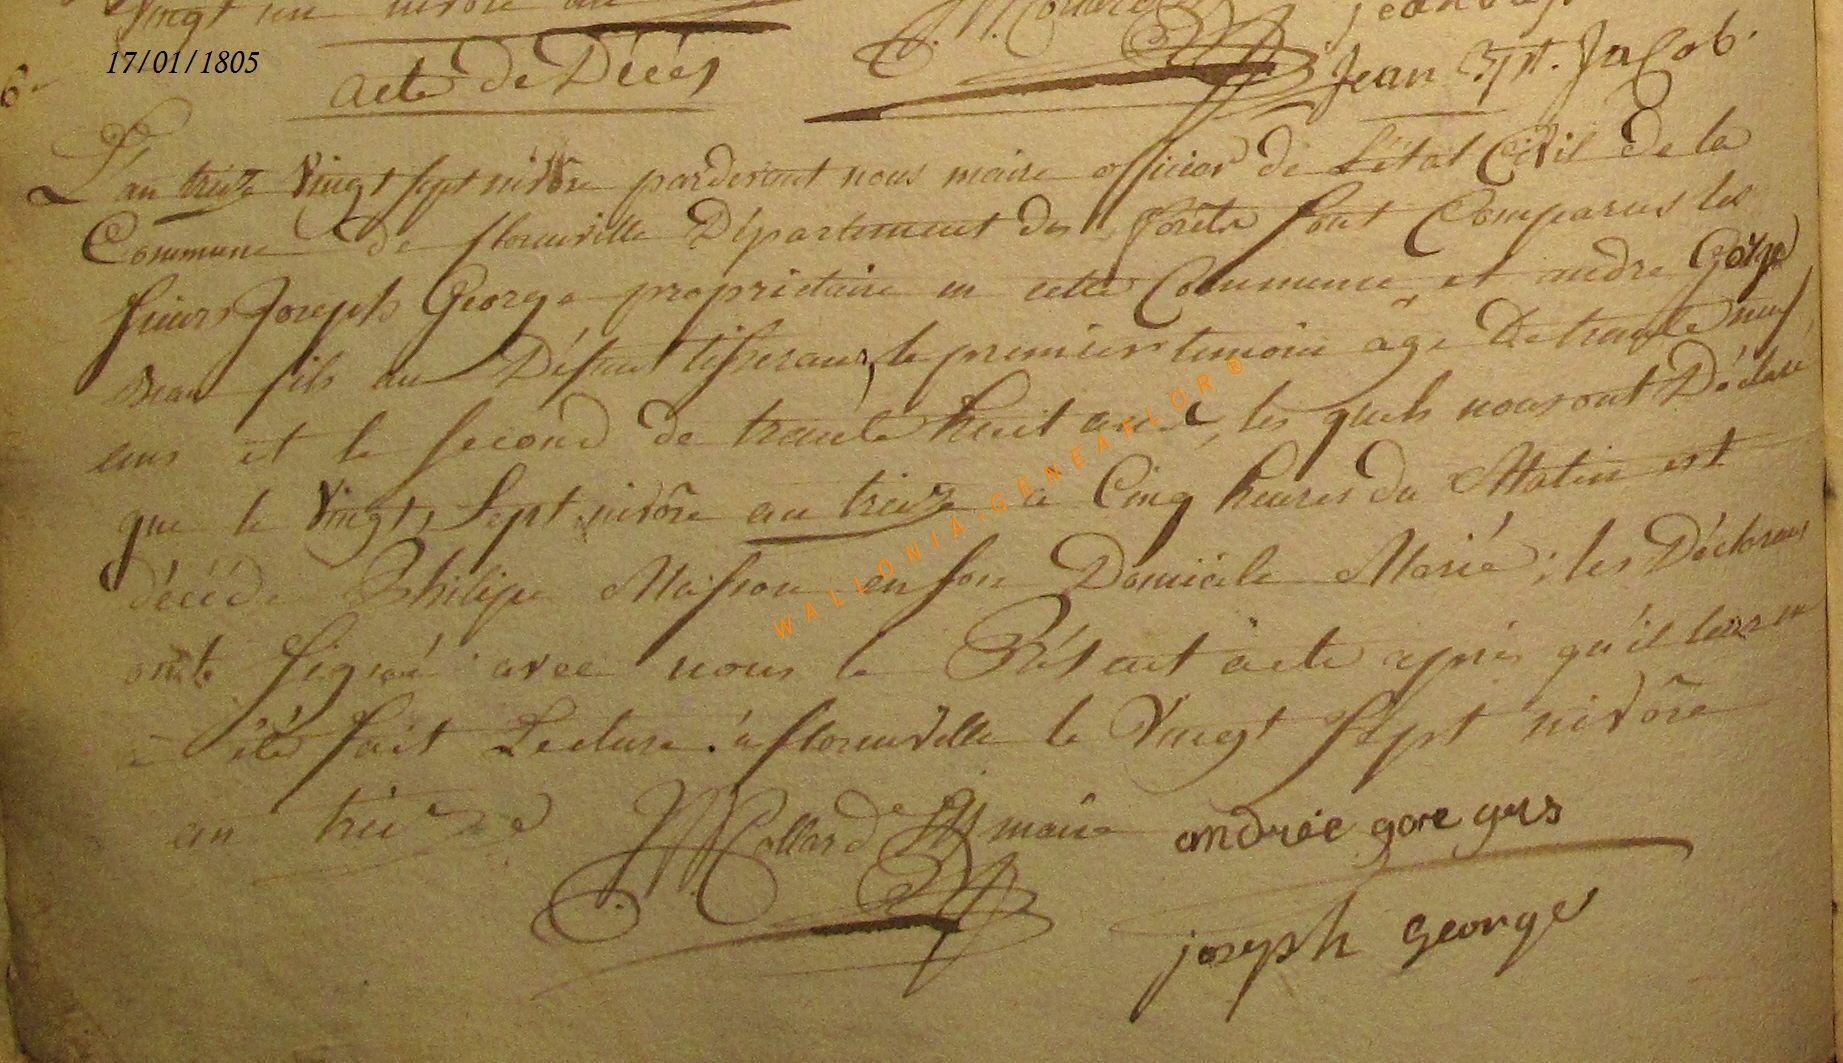 Vingt un nivôse an
17/01/1805
6.
acte de Décés
Jean Bpt. Jacob.
L'an treize Vingt sept nivôse pardevant nous maire officier de L'état Civil de la
Commune de florenville Département des forêts sont Comparus les
sieurs Joseph George propriétaire en cette Commune et andre Gorge
Beau fils au Défunt tisserand, le premier temoin âgé De trente neuf
ans et le second de trente huit ans, les quels nous ont Déclaré
que le Vingt Sept nivôse an treize a Cinq heures du Matin est
décédé Philipe Masson en son Domicile Marié; les Déclarans
ont signé avec nous le Présent acte après qu'il leur en
a été fait Lecture. à florenville le Vingt sept nivôse
an treize
Collard maire
andrée gore gers
joseph george
WALLONIA.GENEAFLOR®